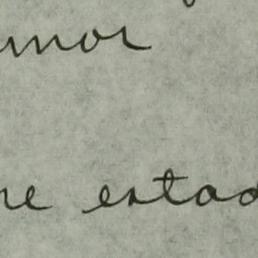 umor
re estad